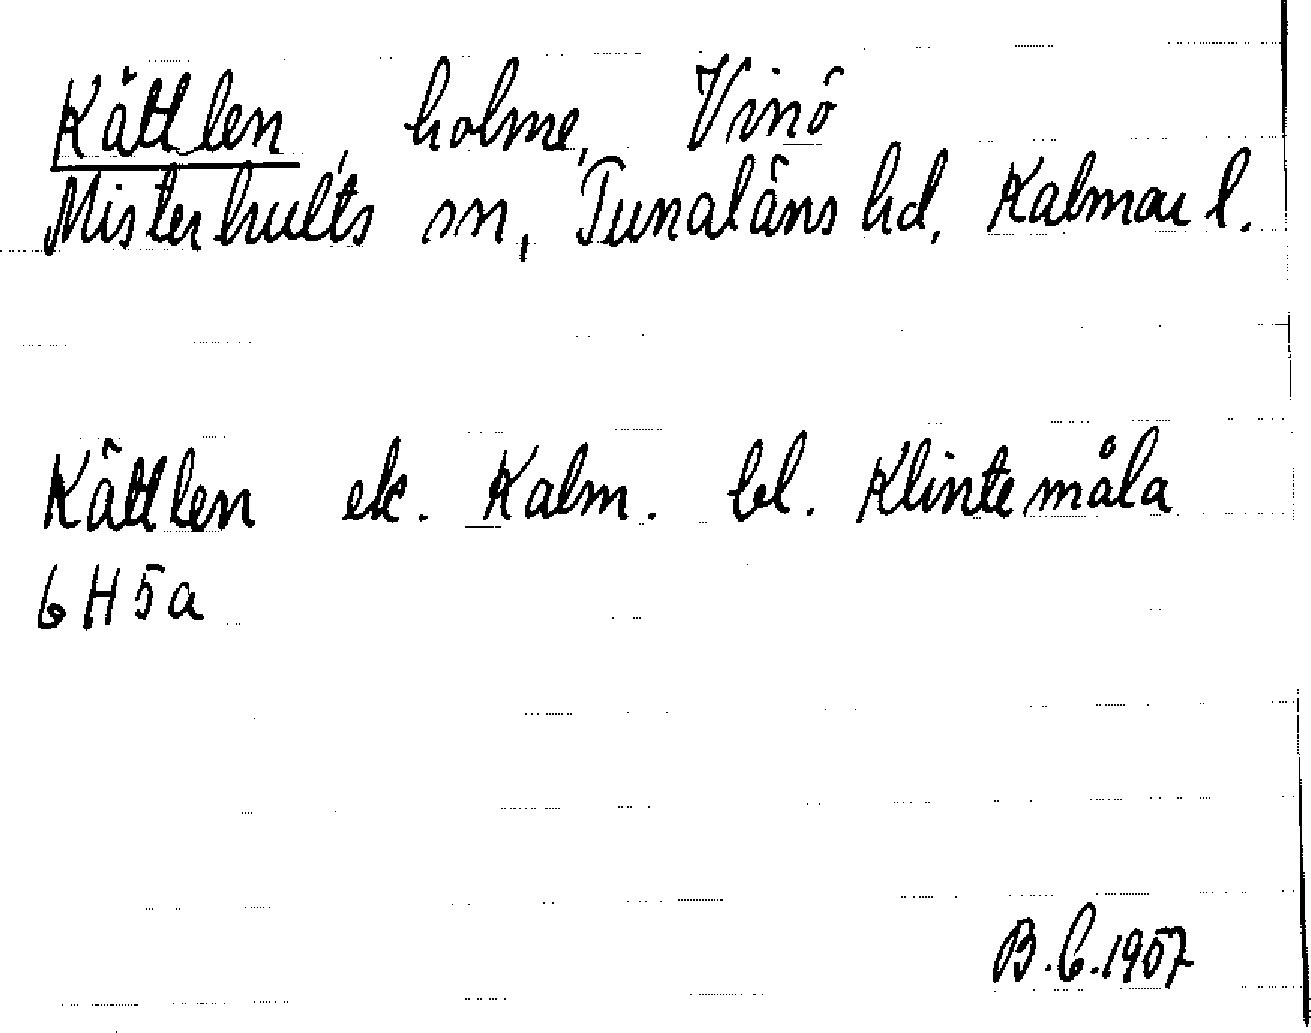 Kättlen, holme, Vinö
Misterhults sn, Tunaläns hd, Kalmar l.
Kättlen ek. Kalm. bl. Klintemåla
6H5a
B.C.1957